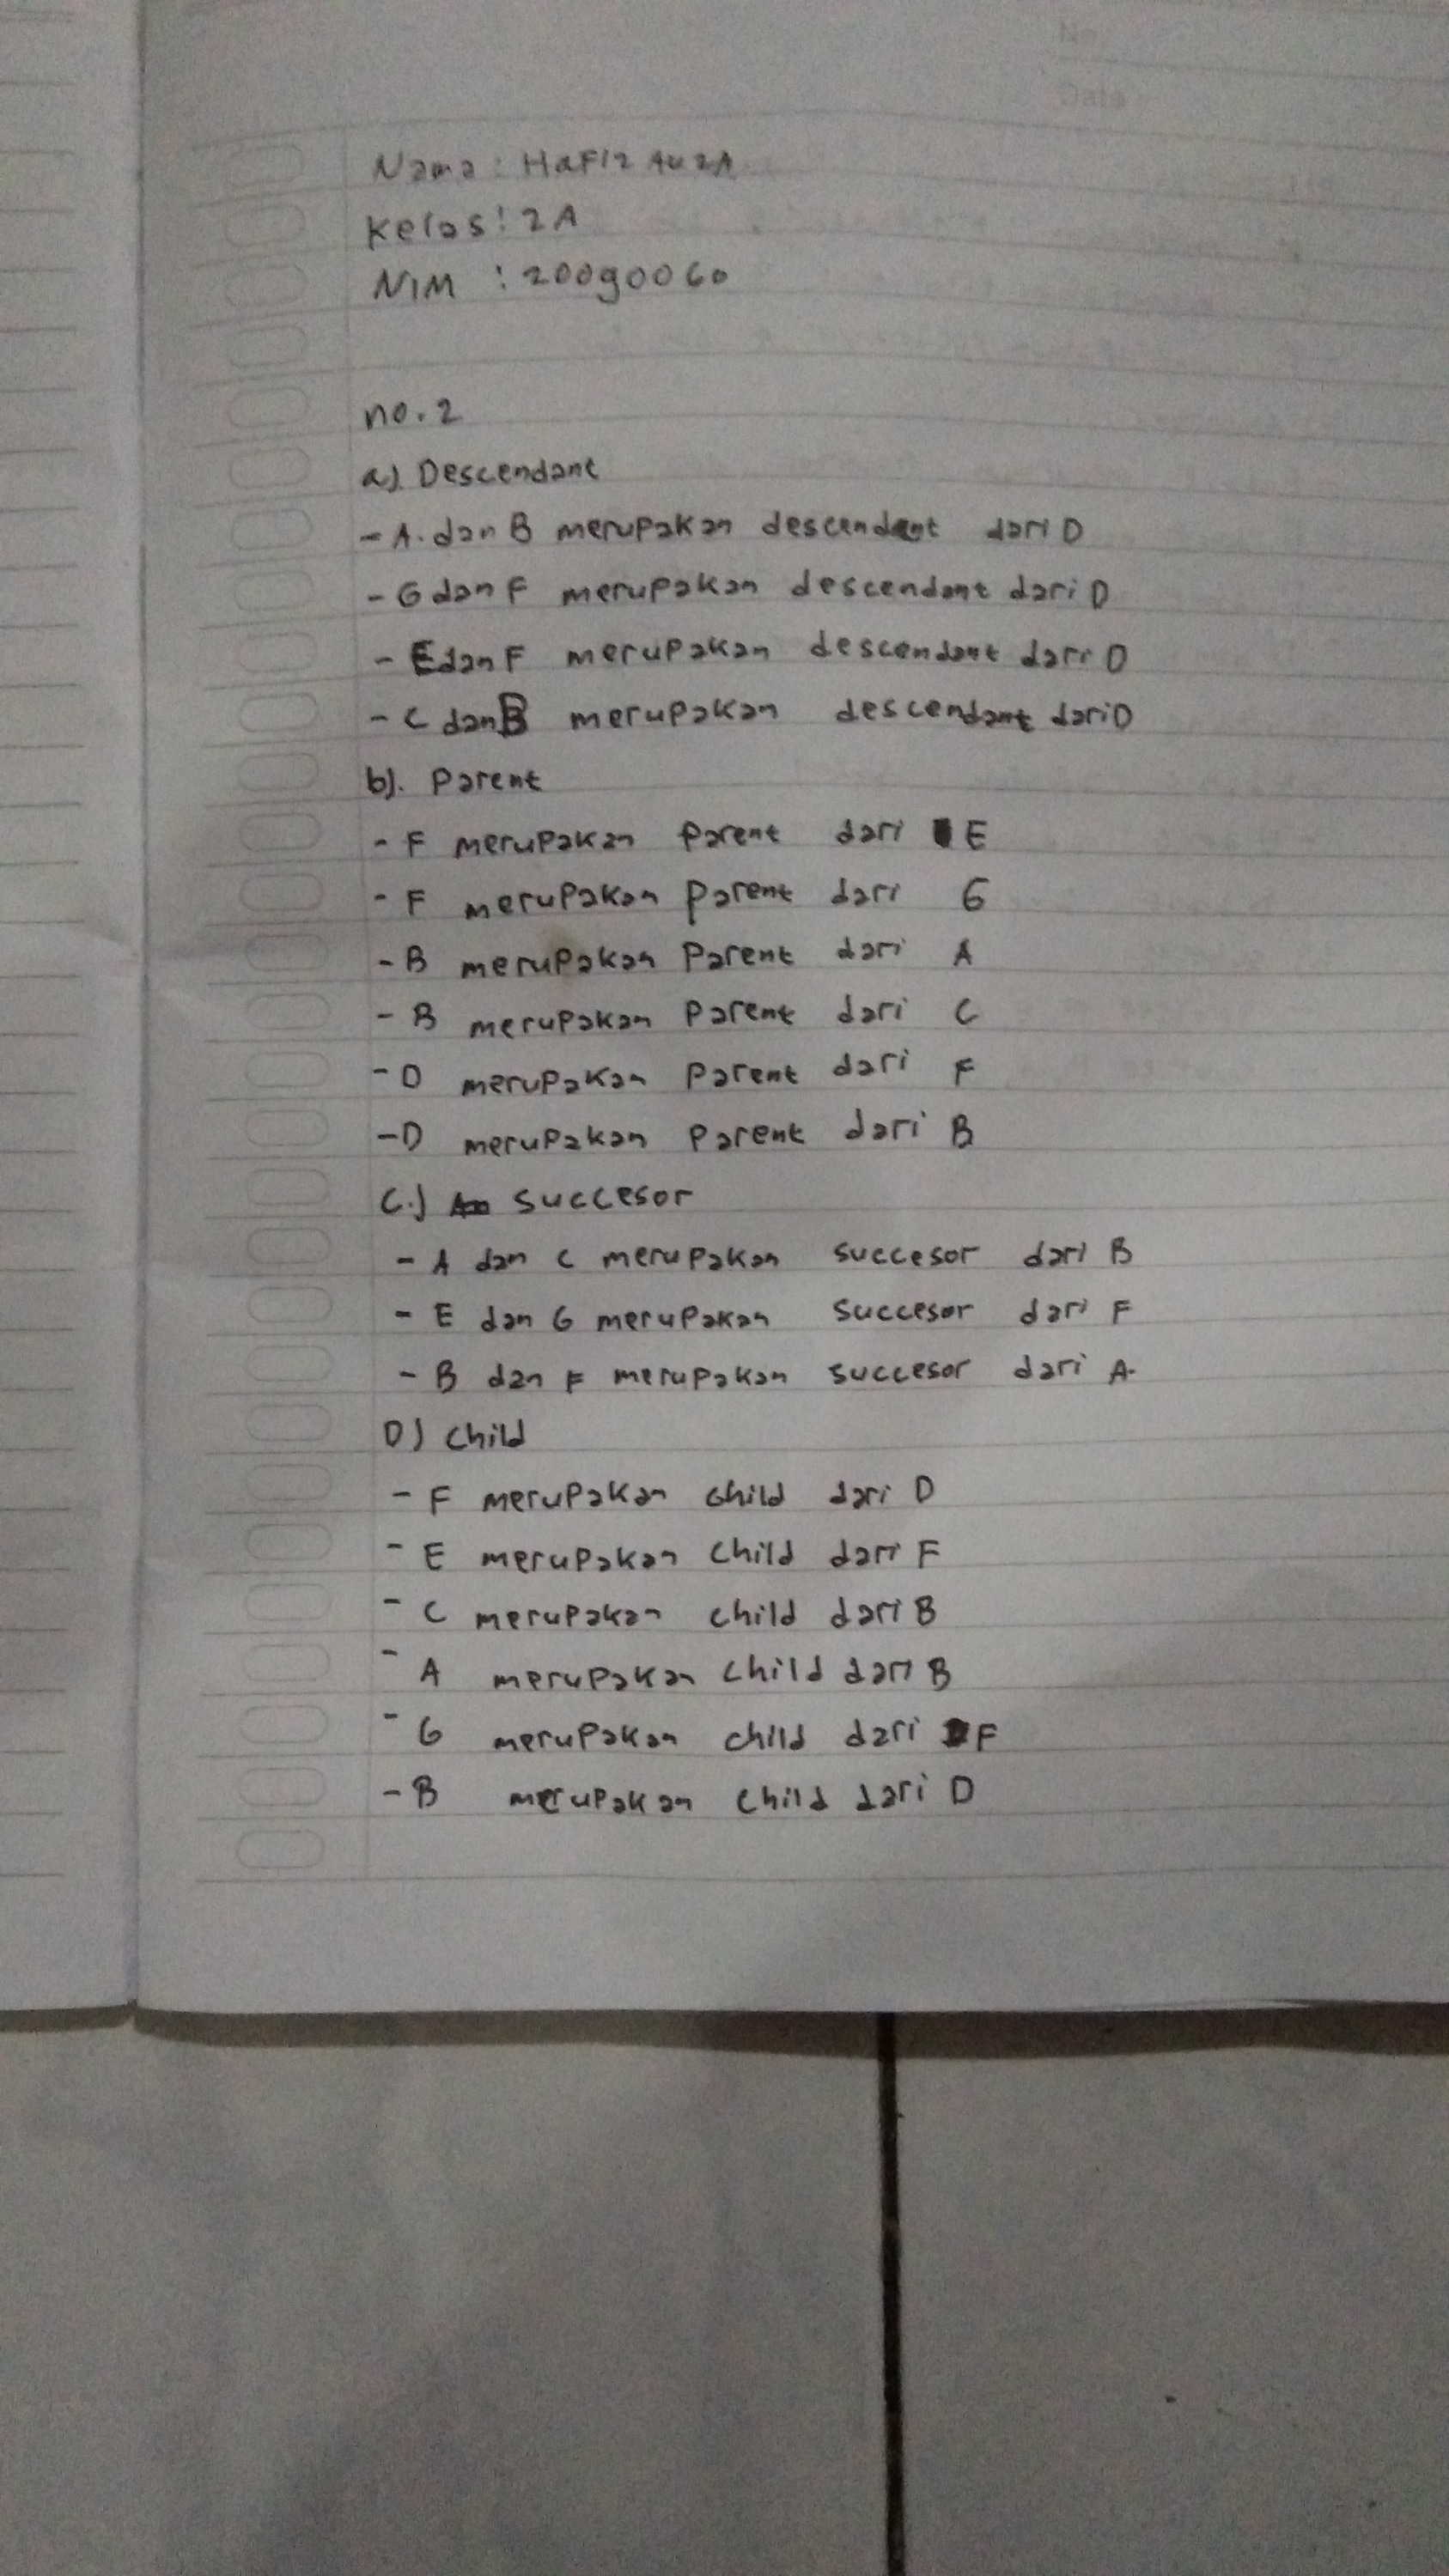 No
Date
Nama : HaFiz AuzA
Kelas : 2A
NIM : 20090060
no. 2
a). Descendant
- A. dan B merupakan descendent dari D
- G dan F merupakan descendant dari D
- E dan F merupakan descendant dari D
- C dan B merupakan descendant dari D
b). Parent
- F merupakan Parent dari E
- F merupakan Parent dari G
- B merupakan Parent dari A
- B merupakan Parent dari C
- D merupakan Parent dari F
- D merupakan Parent dari B
C.) Succesor
- A dan C merupakan succesor dari B
- E dan G merupakan Succesor dari F
- B dan F merupakan succesor dari A.
D) Child
- F merupakan Child dari D
- E merupakan Child dari F
- C merupakan child dari B
- A merupakan Child dari B
- G merupakan child dari F
- B merupakan Child dari D